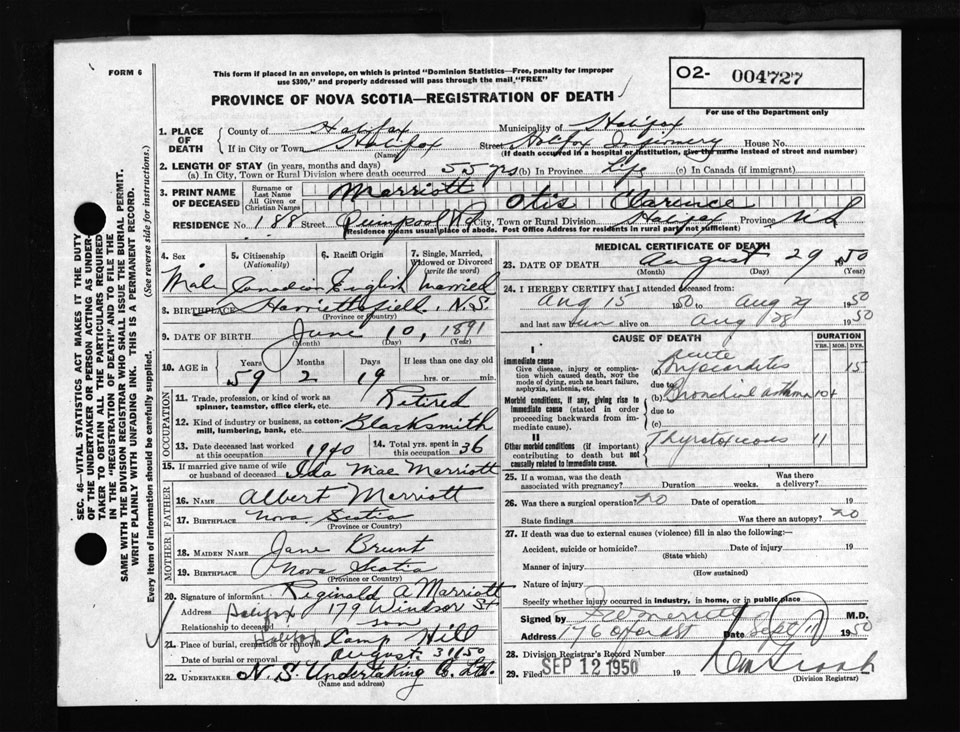 FORM 6
This form if placed in an envelope, on which is printed "Dominion Statistics—Free, penalty for improper
use $300," and properly addressed will pass through the mail "FREE"
PROVINCE OF NOVA SCOTIA—REGISTRATION OF DEATH
O2- 004727
For use of the Department only
SEC. 46—VITAL STATISTICS ACT MAKES IT THE DUTY
OF THE UNDERTAKER OR PERSON ACTING AS UNDER-
TAKER TO OBTAIN ALL THE PARTICULARS REQUIRED
IN THE "REGISTRATION OF DEATH" AND TO FILE THE
SAME WITH THE DIVISION REGISTRAR WHO SHALL ISSUE THE BURIAL PERMIT.
WRITE PLAINLY WITH UNFADING INK. THIS IS A PERMANENT RECORD.
Every item of information should be carefully supplied. (See reverse side for instructions.)
1. PLACE OF DEATH
County of Halifax Municipality of Halifax
If in City or Town Halifax (Name) Street Halifax Infirmary House No.
(If death occurred in a hospital or institution, give the name instead of street and number)
2. LENGTH OF STAY (in years, months and days)
(a) In City, Town or Rural Division where death occurred 55 yrs (b) In Province Life (c) In Canada (if immigrant)
3. PRINT NAME OF DECEASED
Surname or Last Name Marriott
All Given or Christian Names Otis Clarence
RESIDENCE No. 188 Street Quinpool Rd City, Town or Rural Division Halifax Province N S
(Residence means usual place of abode. Post Office Address for residents in rural part not sufficient)
4. Sex Male
5. Citizenship (Nationality) Canadian
6. Racial Origin English
7. Single, Married, Widowed or Divorced (write the word) Married
8. BIRTHPLACE Harriettsfield. N.S. (Province or Country)
9. DATE OF BIRTH June 10, 1891
(Month) (Day) (Year)
10. AGE in Years Months Days If less than one day old
59 2 19 hrs. or min.
OCCUPATION
11. Trade, profession, or kind of work as
spinner, teamster, office clerk, etc. Retired
12. Kind of industry or business, as cotton-
mill, lumbering, bank, etc. Blacksmith
13. Date deceased last worked at this occupation 1940
14. Total yrs. spent in this occupation 36
15. If married give name of wife
or husband of deceased Ida Mae Marriott
FATHER
16. NAME Albert Merriott
17. BIRTHPLACE Nova Scotia
(Province or Country)
MOTHER
18. MAIDEN NAME Jane Brunt
19. BIRTHPLACE Nova Scotia
(Province or Country)
20. Signature of informant Reginald A Marriott
Address Halifax 179 Windsor St
Relationship to deceased son
21. Place of burial, cremation or removal Halifax Camp Hill
Date of burial or removal August 31/50
22. UNDERTAKER N. S. Undertaking Co. Ltd.
(Name and address)
MEDICAL CERTIFICATE OF DEATH
23. DATE OF DEATH August 29 1950
(Month) (Day) (Year)
24. I HEREBY CERTIFY that I attended deceased from:
Aug 15 1950 to Aug 29 1950
and last saw him alive on Aug 28 1950
CAUSE OF DEATH DURATION
YRS. MOS. DYS.
I
Immediate cause
Give disease, injury or complication which caused death, NOT the mode of dying, such as heart failure, asphyxia, asthenia, etc.
(a) Acute Myocarditis 15
due to
Morbid conditions, if any, giving rise to immediate cause (stated in order proceeding backwards from immediate cause).
(b) Bronchial asthma 10+
due to
(c)
II
Other morbid conditions (if important) contributing to death but not causally related to immediate cause.
Thyrotoxicosis 11
25. If a woman, was the death Was there
associated with pregnancy? Duration weeks. a delivery?
26. Was there a surgical operation? no Date of operation 19
State findings Was there an autopsy? no
27. If death was due to external causes (violence) fill in also:
Accident, suicide or homicide? Date of injury 19
(State which)
Manner of injury
(How sustained)
Nature of injury
Specify whether injury occurred in industry, in home, or in public place
Signed by M.D.
Address 176 Oxford St Date Sept 11 1950
28. Division Registrar's Record Number
29. Filed SEP 12 1950 19
(Division Registrar)